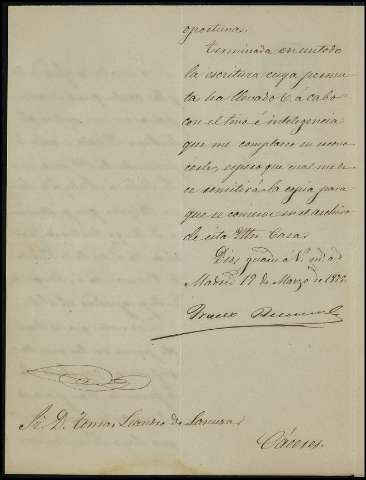 oportunas.
Terminada en un todo
la escritura cuya permu-
ta ha llevado V. á cabo
con el tino é inteligencia
que me complazco en recono-
cerle, espero que cual me di-
ce remitirá la copia para
que se conserve en el archivo
de esta Ittre. Casa.
Dios guarde á V. m. a.
Madrid 17 de Marzo de
Sr. D. Tomas Leandro de
Cáceres.